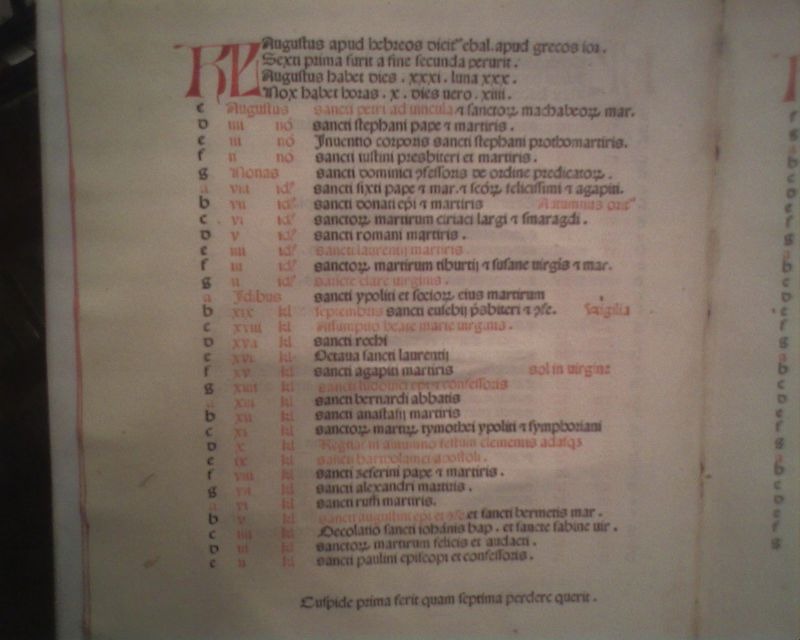 KL Augustus apud hebreos dicit᷒ ebal. apud grecos ioi.
Sexti prima furit a fine secunda perurit.
Augustus habet dies . xxxi. luna xxx.
Nox habet horas . x . dies uero . xiiii.
c Augustus sancti petri ad uincula ⁊ sanctoꝝ machabeoꝝ mar.
d iiii nō sancti stephani pape ⁊ martiris .
e iii nō Inuentio corporis sancti stephani prothomartiris.
f ii nō sancti iustini presbiteri et martiris .
g Nonas sancti dominici ꝯfessoris de ordine predicatoꝝ .
a viii id᷒ sancti sixti pape ⁊ mar. ⁊ scōꝝ felicissimi ⁊ agapiti.
b vii id᷒ sancti donati epi ⁊ martiris Autumnus orit᷒
c vi id᷒ sanctoꝝ martirum ciriaci largi ⁊ smaragdi .
d v id᷒ sancti romani martiris .
e iiii id᷒ sancti laurentij martiris .
f iii id᷒ sanctoꝝ martirum tiburtij ⁊ susane uirgīs ⁊ mar.
g ii id᷒ sancte clare uirginis .
a Idibus sancti ypoliti et socioꝝ eius martirum
b xix kl septembris sancti eusebij p̄sbiteri ⁊ ꝯfe. Vigilia
c xviii kl Assumptio beate marie uirginis .
d xvii kl sancti rochi
e xvi kl Octaua sancti laurentij
f xv kl sancti agapiti martiris sol in uirgine
g xiiii kl sancti ludouici epi ⁊ confessoris
a xiii kl sancti bernardi abbatis
b xii kl sancti anastasij martiris
c xi kl sanctoꝝ martiꝝ tymothei ypoliti ⁊ symphoriani
d x kl Regnat in autumno festum clementis
e ix kl sancti bartholomei apostoli .
f viii kl sancti seferini pape ⁊ martiris .
g vii kl sancti alexandri martiris .
a vi kl sancti ruffi martiris.
b v kl sancti augustini epi et ꝯfe et sancti hermetis mar .
c iiii kl Decolatio sancti iohānis bap . et sancte sabine uir .
d iii kl sanctoꝝ martirum felicis et audacti .
e ii kl sancti paulini episcopi et confessoris .
Cuspide prima ferit quam septima perdere querit .
f
g
a
b
c
d
e
f
g